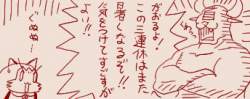 がおるよ!
この三連休はまた
暑くなるぞ!!
気をつけてすごすが
よい!!
ぐぬぬ…